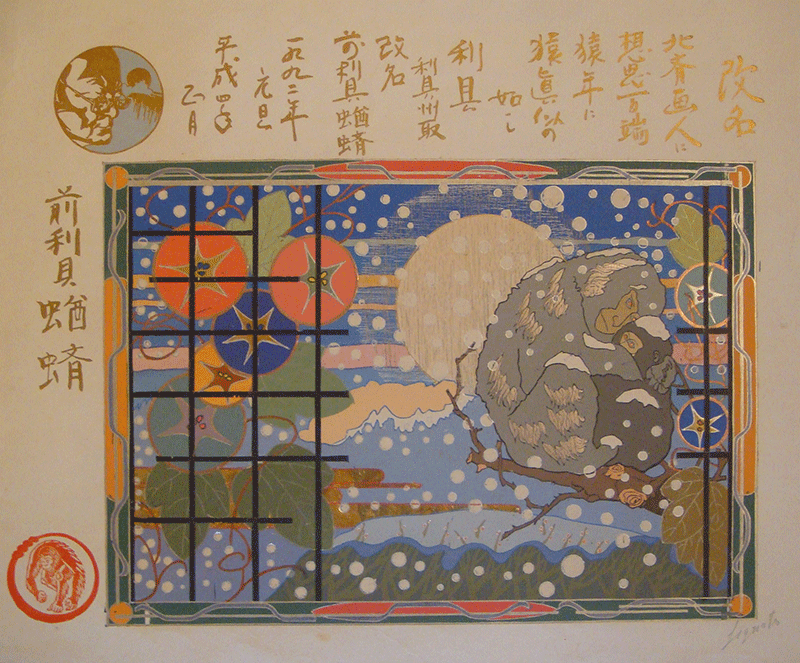 改名
北斉画人に
想思百端
猿年に
猿真似の
如し
利貝
利貝州取
改名
前利貝蝤蠐
一九九二年
元旦
平成四年
正月
前利貝蝤蠐